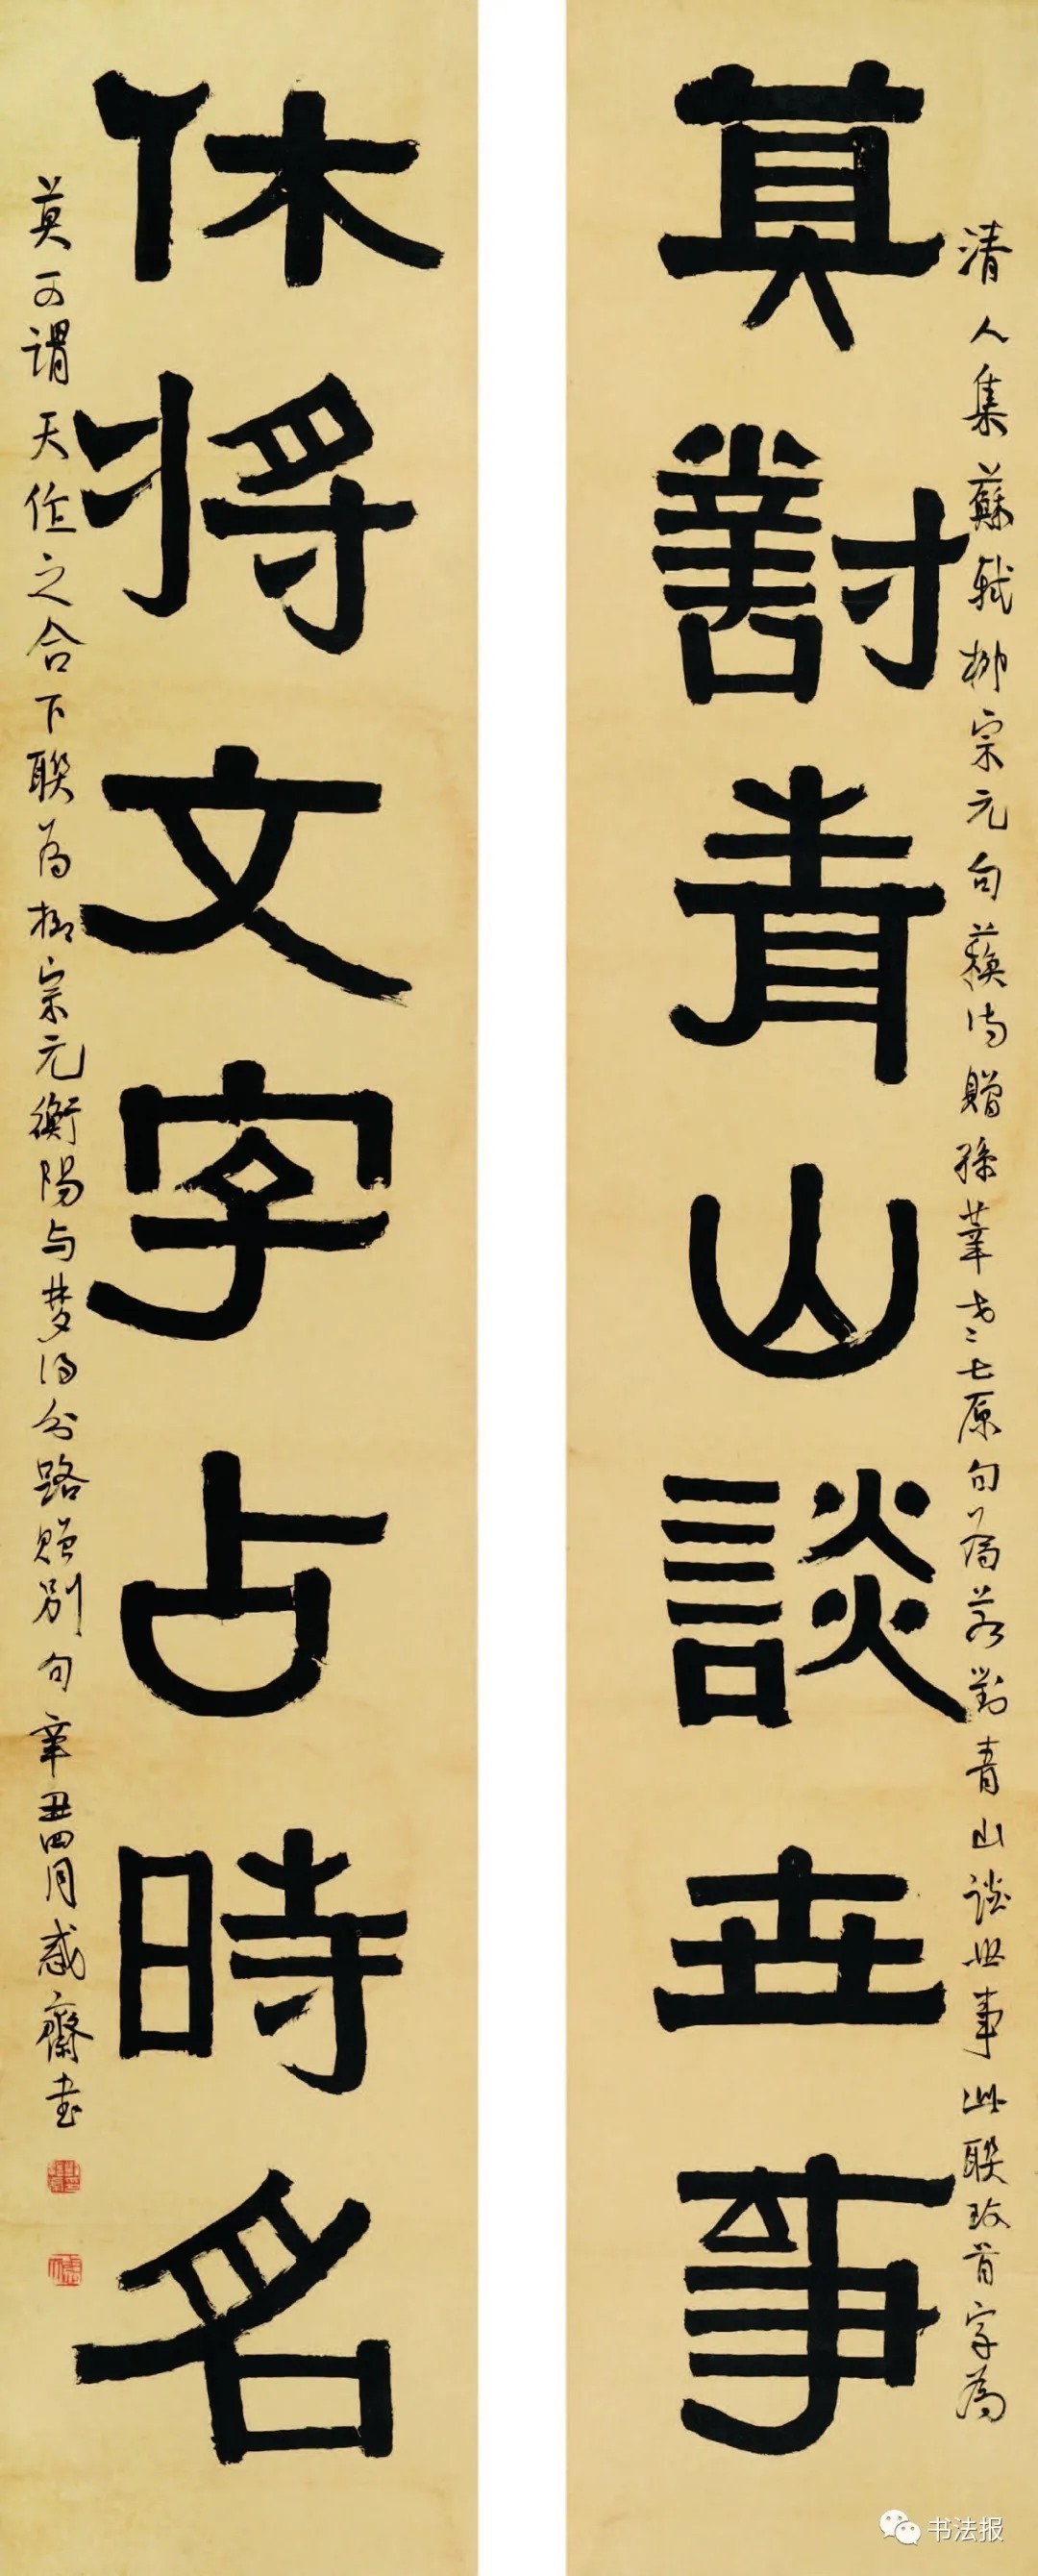 清人集蘇軾柳宗元句蘇詩贈孫莘老七原句為若對青山談世事此聯改首字為
莫對青山談世事
休將文字占時名
莫可謂天作之合下聯為柳宗元衡陽与夢得分路贈別句辛丑四月感齋书
书法报